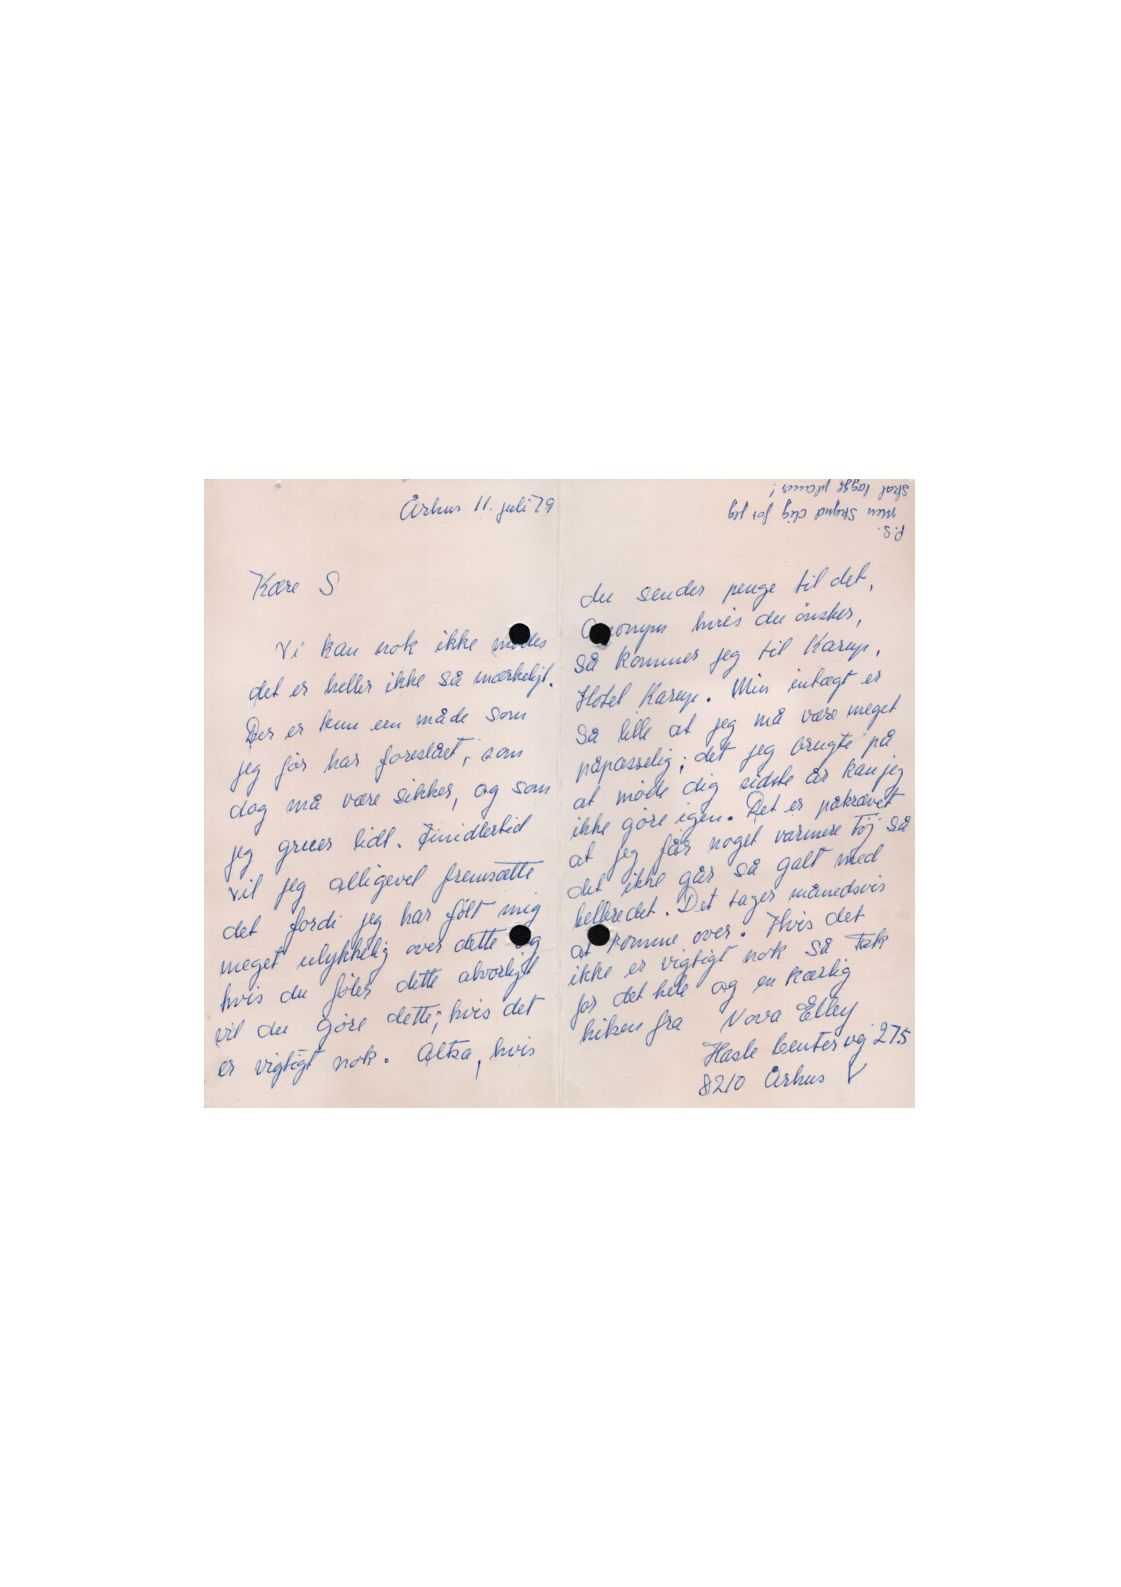 Århus 11. juli 79
Kære S
Vi kan nok ikke mødes
det er heller ikke så mærkeligt.
Der er kun em måde som
jeg før har foreslået, som
dog må være sikker, og som
jeg gruer lidt. Imidlertid
vil jeg alligevel fremsætte
det fordi jeg har følt mig
meget ulykkelig over dette og
hvis du føler dette alvorligt
vil du gøre dette; hvis det
er vigtigt nok. Altsa, hvis
du sender penge til det,
Anonym hvis du ønsker,
så kommer jeg til Karup,
Hotel Karup. Min intægt er
så lille at jeg må være meget
påpasselig; det jeg brugte på
at møde dig sidste år kan jeg
ikke gøre igen. Det er påkrævet
at jeg får noget varmere töj så
det ikke går så galt med
helbredet. Det tager månedsvis
at komme over. Hvis det
ikke er vigtigt nok så tak
for det hele og en kærlig
hilsen fra Nova Elley
Hasle Centervej 275
8210 Århus V
P.S.
Men skynd dig for jeg
skal lægge planer!